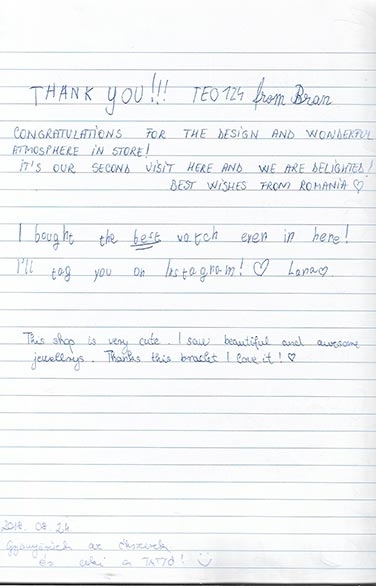 THANK YOU!!! TEO 124 from Bran
CONGRATULATIONS FOR THE DESIGN AND WONDERFUL
ATMOSPHERE IN STORE!
IT'S OUR SECOND VISIT HERE AND WE ARE DELIGHTED!
BEST WISHES FROM ROMANIA ♡
I bought the best watch ever in here!
I'll tag you on Instagram! ♡ Lana♡
This shop is very cute. I saw beautiful and awesome
jewellrys. Thanks this braclet I love it! ♡
2017. 07. 24
Gyönyörűek az ékszerek
és a